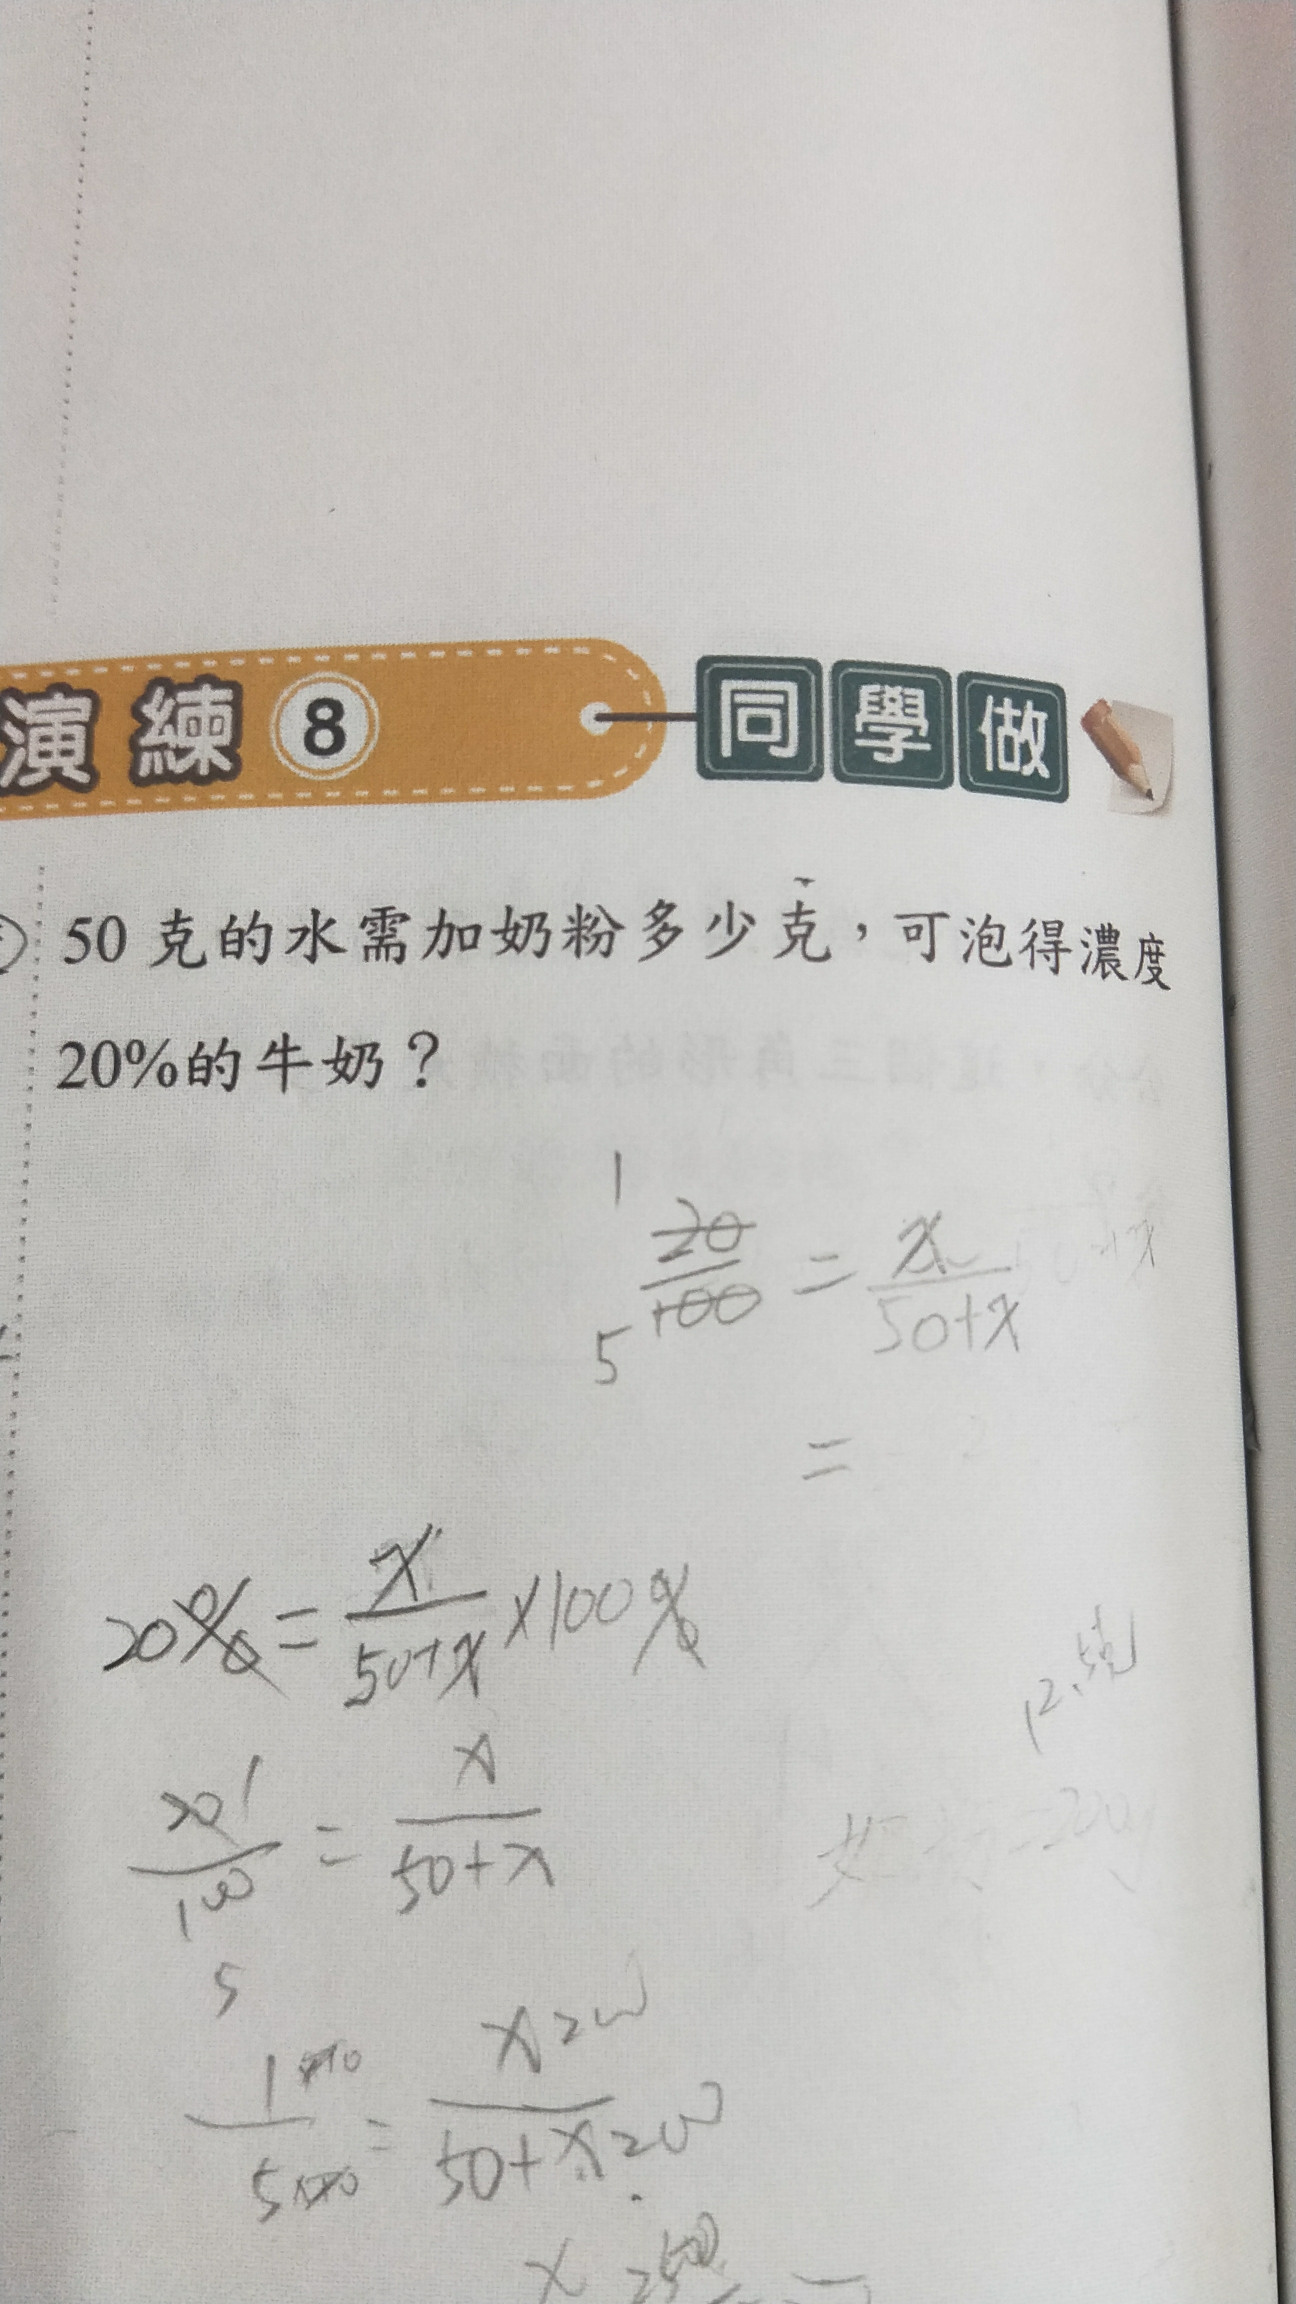 演練 8 同學做
50 克的水需加奶粉多少克，可泡得濃度
20%的牛奶？
1
20/100 = x/(50+x)
5
=
20% = x/(50+x) ×100%
12.5克
20/100 = x/(50+x)
1
5
1/5 = x/(50+x)